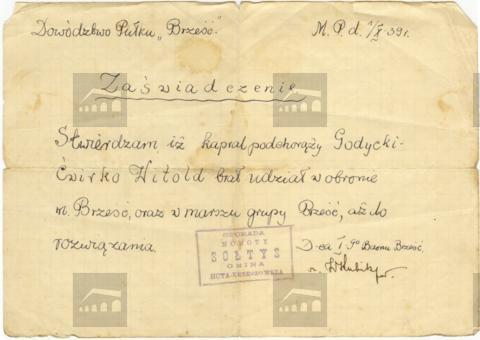 Dowództwo Pułku „Brześć”. M. P. d. 1/X-39 r.
Zaświadczenie
Stwierdzam, iż kapral podchorąży Godycki-
Ćwirko Witold brał udział w obronie
m. Brześć, oraz w marszu grupy Brześć, aż do
rozwiązania
GROMADA
SOŁTYS
GMINA
HUTA-KRZESZOWSKA
D-ca Baonu Brześć